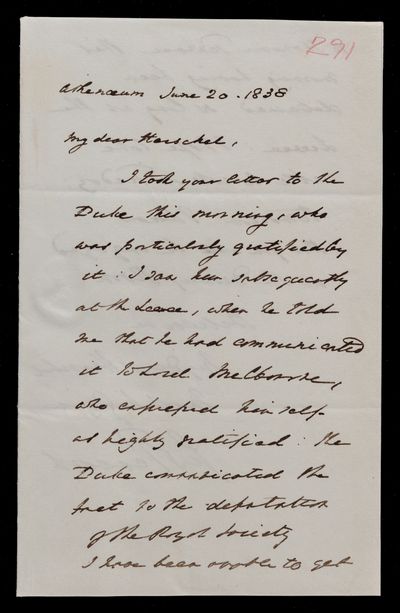 291
Athenæum June 20. 1838
My dear Herschel,
I took your letter to the
Duke this morning, who
was particularly gratified by
it: I saw him subsequently
at the Levee, when he told
me that he had communicated
it to Lord Melbourne,
who expressed himself
as highly gratified: the
Duke communicated the
fact to the deputation
of the Royal Society
I have been unable to get